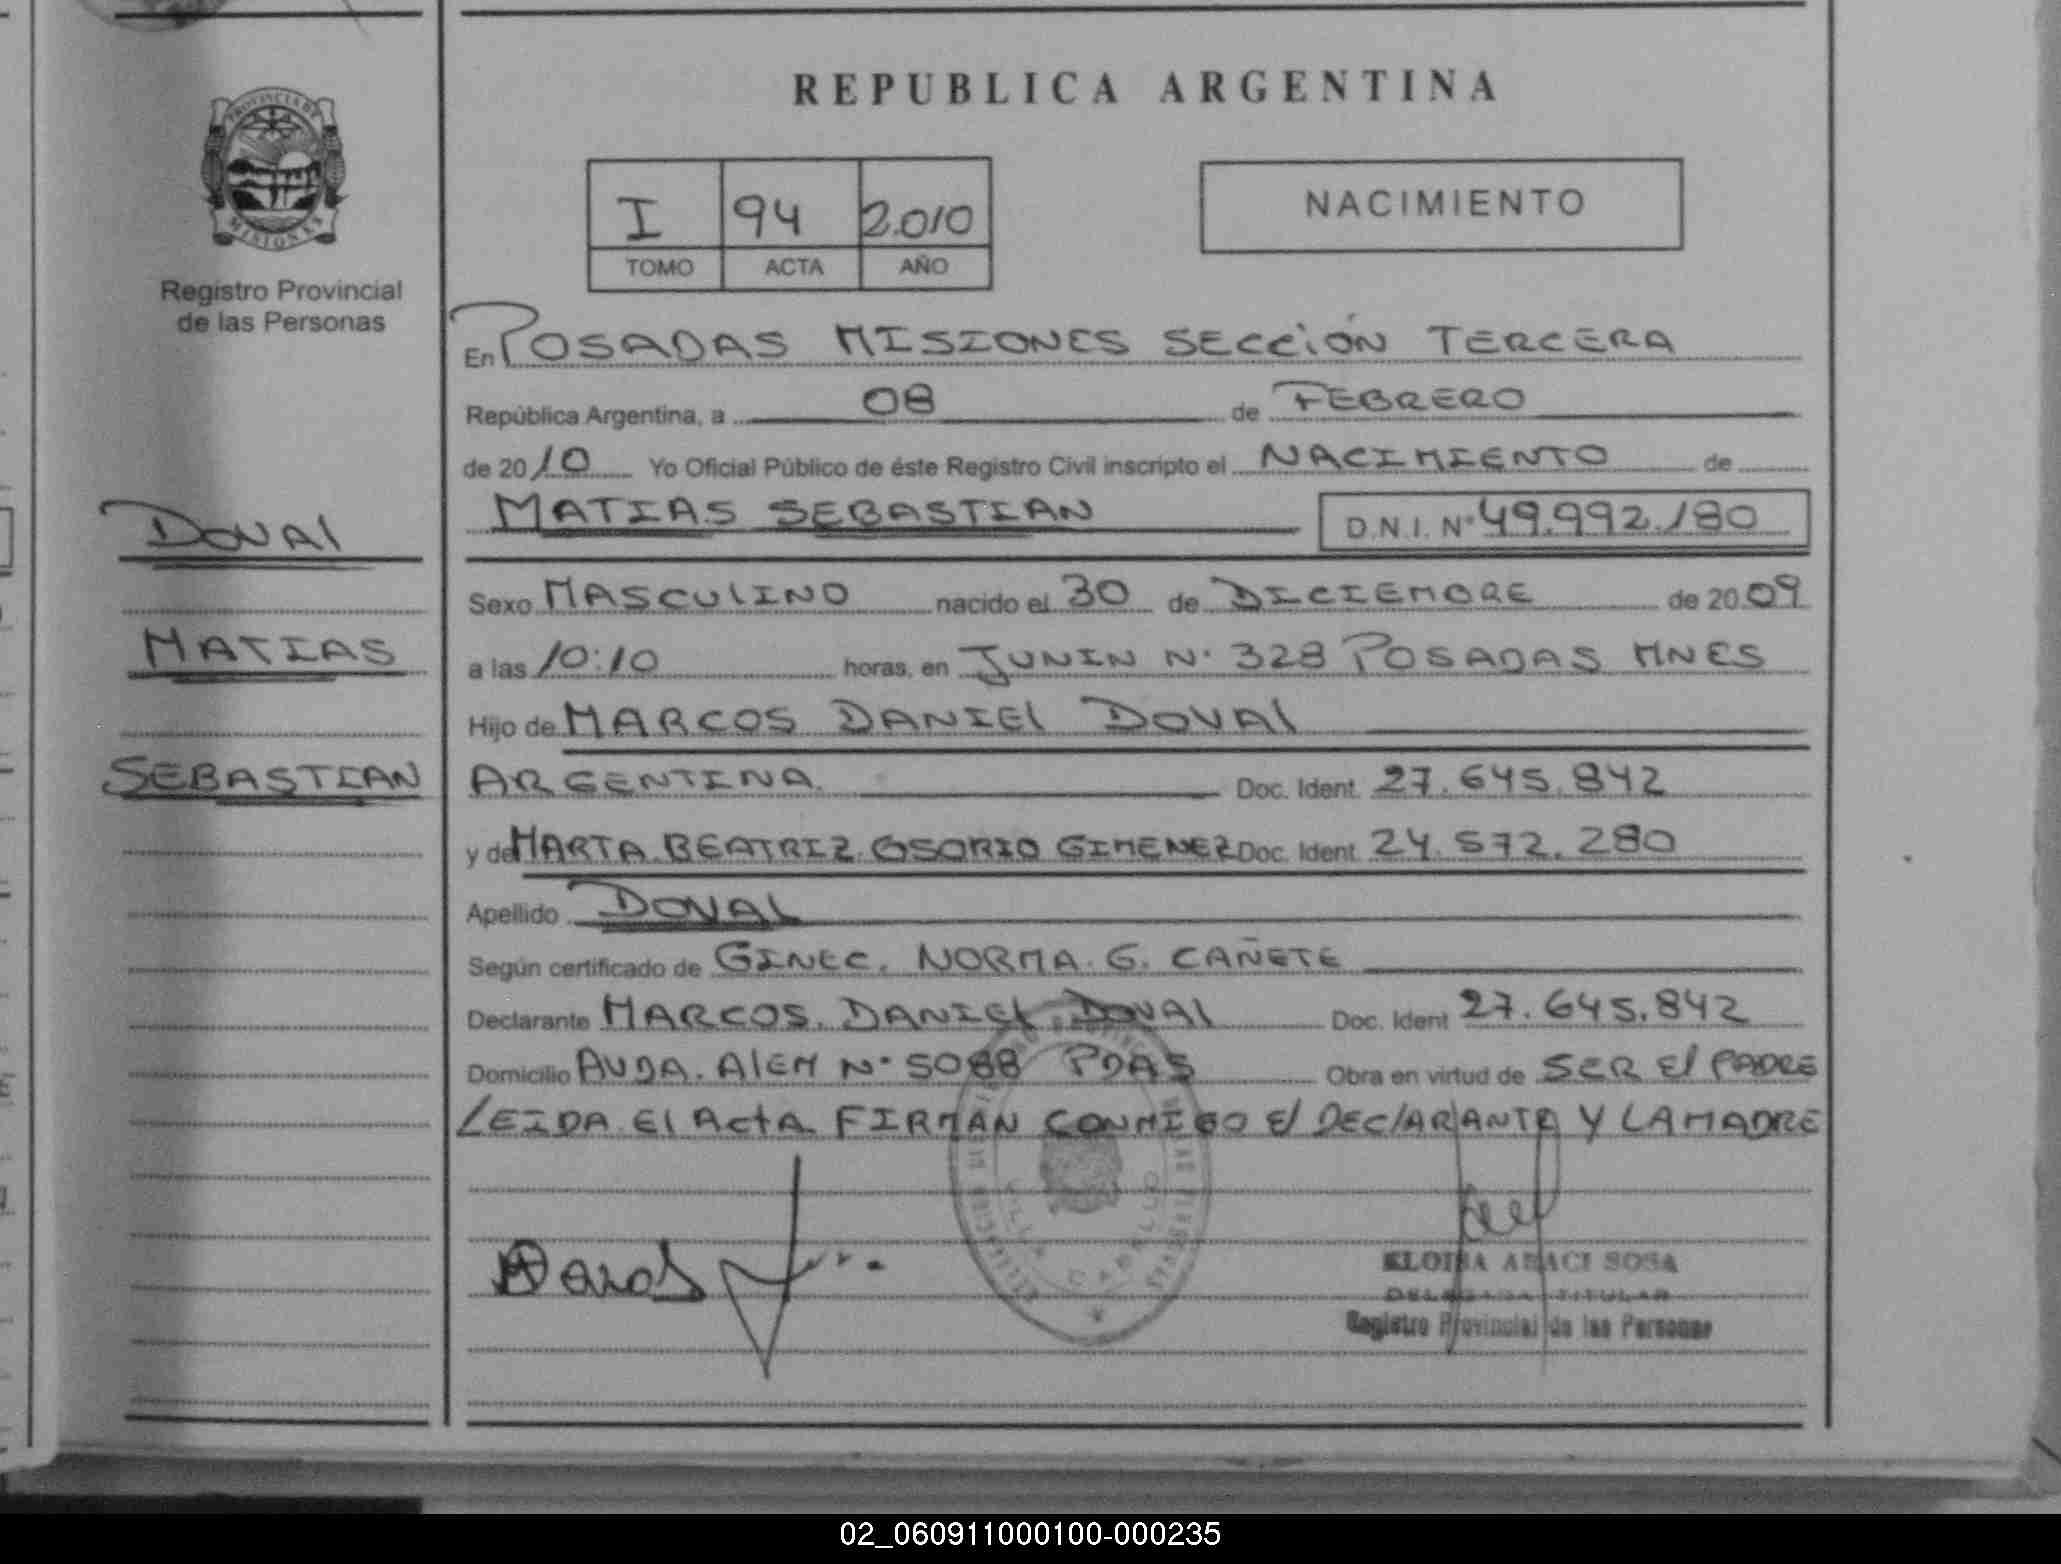 REPUBLICA ARGENTINA
PROVINCIA DE
MISIONES
Registro Provincial
de las Personas
I 94 2.010
TOMO ACTA AÑO
NACIMIENTO
En POSADAS MISIONES SECCIÓN TERCERA
República Argentina, a 08 de FEBRERO
de 2010 Yo Oficial Público de éste Registro Civil inscripto el NACIMIENTO de
MATIAS SEBASTIAN D.N.I. Nº 49.992.180
DOVAl
MATIAS
SEBASTIAN
Sexo MASCULINO nacido el 30 de DICIEMBRE de 2009
a las 10:10 horas, en JUNIN Nº 328 POSADAS MNES
Hijo de MARCOS DANIEl DOVAl
ARGENTINA Doc. Ident. 27.645.842
y de MARTA BEATRIZ OSORIO GIMENEZ Doc. Ident. 24.572.280
Apellido DOVAL
Según certificado de GINEC. NORMA G. CAÑETE
Declarante MARCOS DANIEl DOVAl Doc. Ident 27.645.842
Domicilio AVDA. AlEM Nº 5088 PDAS Obra en virtud de SER El PADRE
LEIDA El ActA FIRMAN CONMIGO El DEClARANTE Y LA MADRE
VILLA CABELLO
ELOISA ARACI SOSA
DELEGADA TITULAR
Registro Provincial de las Personas
02_060911000100-000235